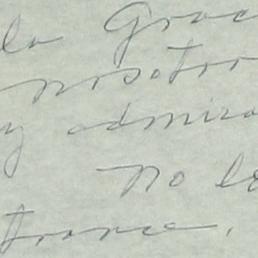 la Grac
nosotro
y admira
No le
trance.